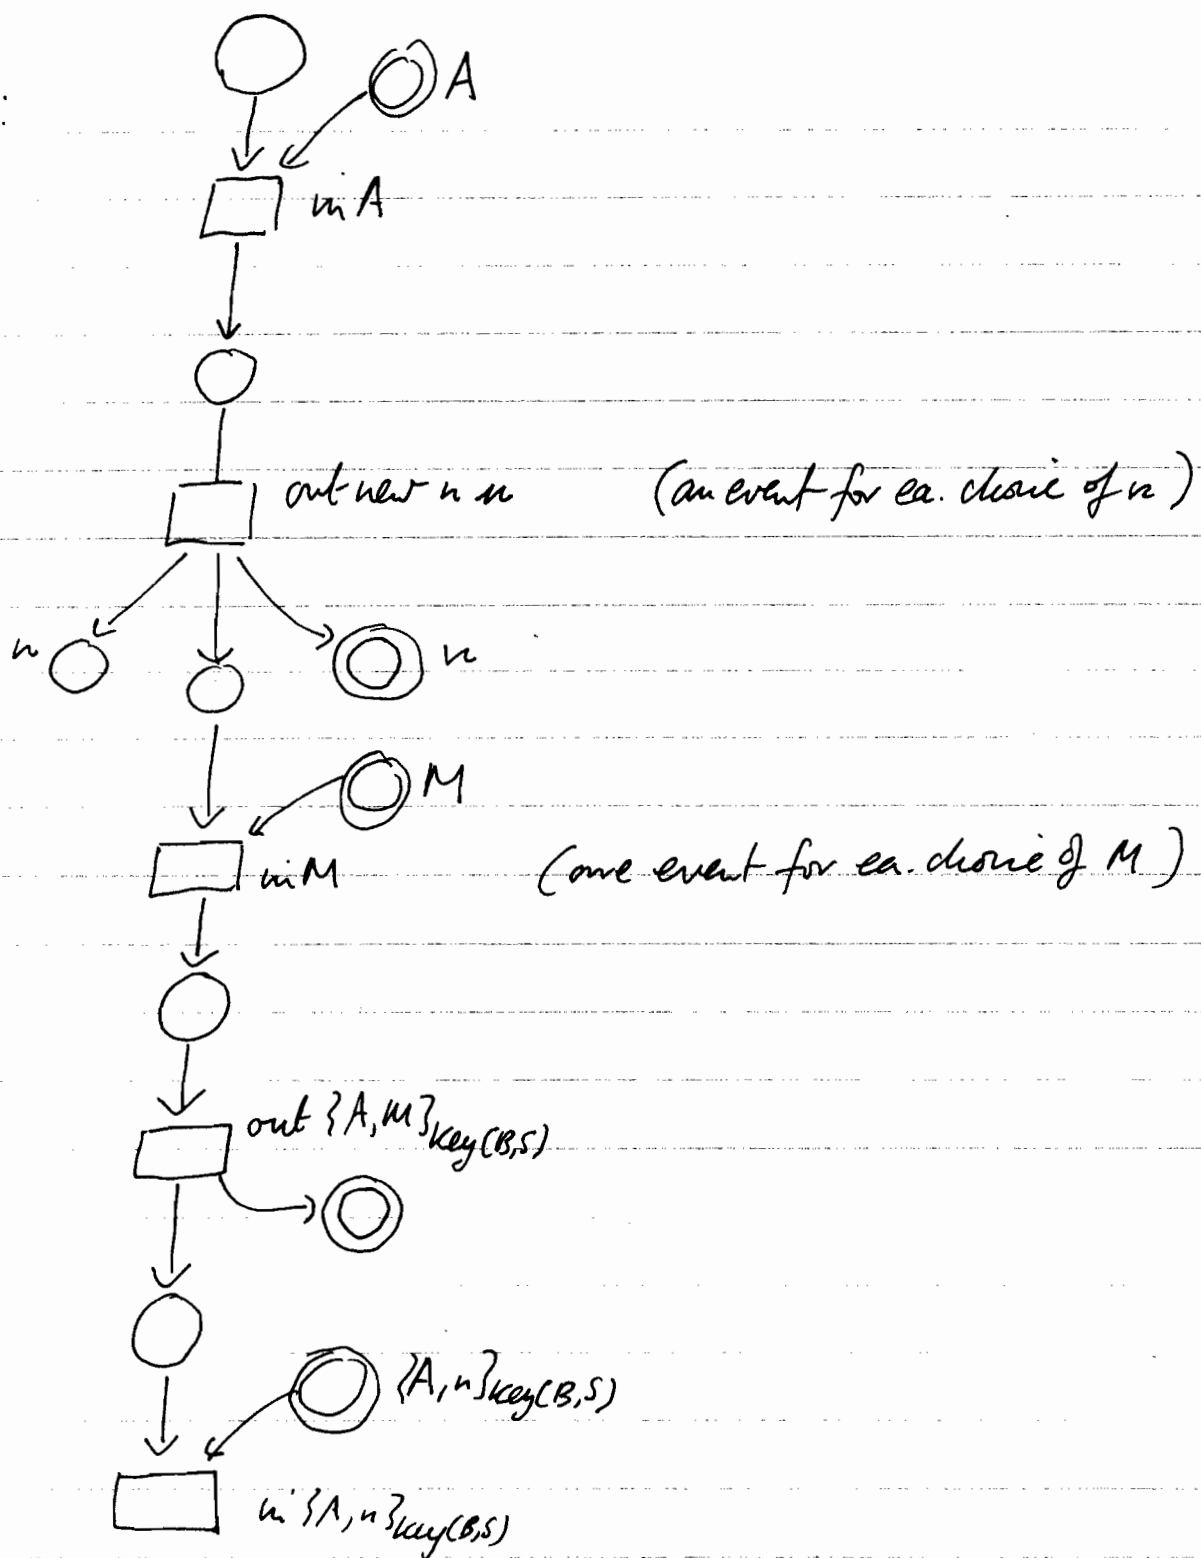 A
in A
out new n n (an event for ea. choice of n)
n
n
M
in M (one event for ea. choice of M)
out {A, M}key(B,S)
{A, n}key(B,S)
in {A, n}key(B,S)